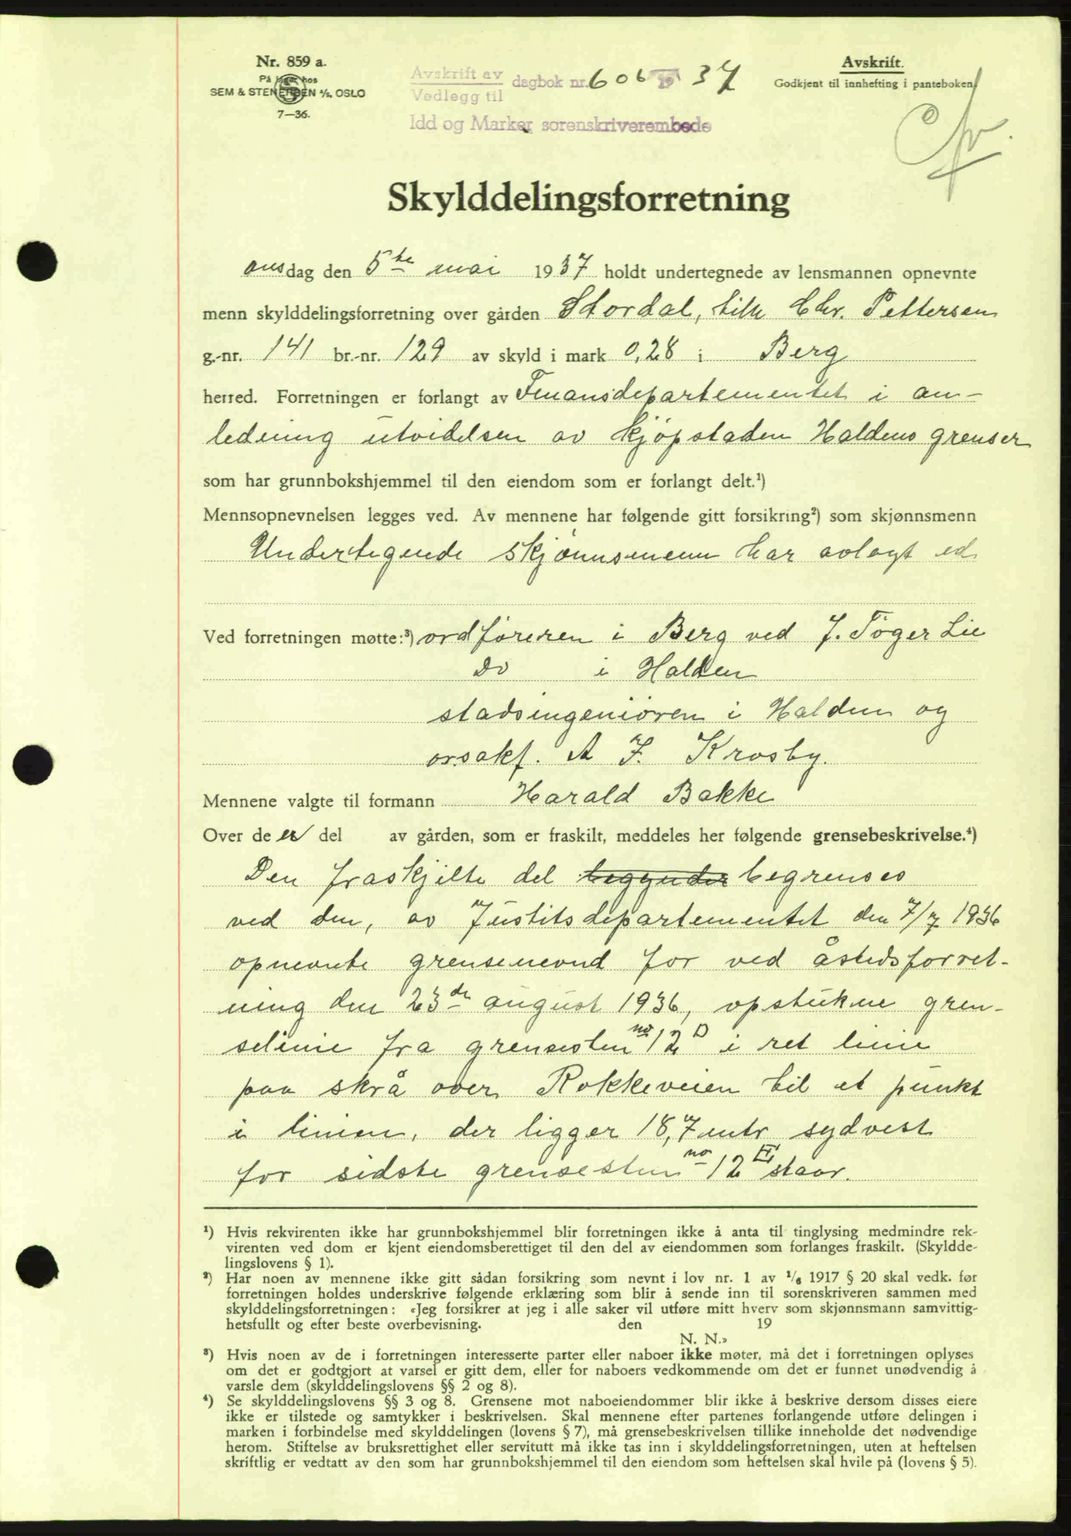 Nr. 859 a.
På lager hos
SEM & STENERSEN A/S, OSLO
7—36.
Avskrift av
Vedlegg til
dagbok nr. 606 19 37
Idd og Marker sorenskriverembede
Avskrift.
Godkjent til innhefting i panteboken
Skylddelingsforretning
onsdag den 5te mai 1937 holdt undertegnede av lensmannen opnevnte
menn skylddelingsforretning over gården Stordal, tilh Chr. Pettersen
g.-nr. 141 br.-nr. 129 av skyld i mark 0,28 i Berg
herred. Forretningen er forlangt av Finansdepartementet i an-
ledning utvidelsen av kjøpstaden Haldens grenser
som har grunnbokshjemmel til den eiendom som er forlangt delt.¹)
Mennsopnevnelsen legges ved. Av mennene har følgende gitt forsikring²) som skjønnsmenn
Undertegnede skjønnsmenn har avlagt ed
Ved forretningen møtte:³) ordføreren i Berg ved J. Töger Lie
Do i Halden
stadsingeniören i Halden og
o.r.sakf. A F. Krosby.
Mennene valgte til formann Harald Bakke
Over de er del av gården, som er fraskilt, meddeles her følgende grensebeskrivelse.⁴)
Den fraskjilte del begynder begrenses
ved den, av Justitsdepartementet den 7/7 1936
opnevnte grensenevnd for ved åstedsforret-
ning den 23de august 1936, opstukne gren-
selinie fra grensesten no 12 □ i ret linie
paa skrå over Rokkeveien til et punkt
i linien, der ligger 18,7 mtr sydvest
for sidste grensesten no 12 staar.
¹) Hvis rekvirenten ikke har grunnbokshjemmel blir forretningen ikke å anta til tinglysing medmindre rek-
virenten ved dom er kjent eiendomsberettiget til den del av eiendommen som forlanges fraskilt. (Skyldde-
lingslovens § 1).
²) Har noen av mennene ikke gitt sådan forsikring som nevnt i lov nr. 1 av 1/6 1917 § 20 skal vedk. før
forretningen holdes underskrive følgende erklæring som blir å sende inn til sorenskriveren sammen med
skylddelingsforretningen: «Jeg forsikrer at jeg i alle saker vil utføre mitt hverv som skjønnsmann samvittig-
hetsfullt og efter beste overbevisning. den 19
N. N.»
³) Hvis noen av de i forretningen interesserte parter eller naboer ikke møter, må det i forretningen oplyses
om det er godtgjort at varsel er gitt dem, eller for naboers vedkommende om det er funnet unødvendig å
varsle dem (skylddelingslovens §§ 2 og 8).
⁴) Se skylddelingslovens §§ 3 og 8. Grensene mot naboeiendommer blir ikke å beskrive dersom disses eiere
ikke er tilstede og samtykker i beskrivelsen. Skal mennene efter partenes forlangende utføre delingen i
marken i forbindelse med skylddelingen (lovens § 7), må grensebeskrivelsen tillike inneholde det nødvendige
herom. Stiftelse av bruksrettighet eller servitutt må ikke tas inn i skylddelingsforretningen, uten at heftelsen
skriftlig er vedtatt av den som har grunnbokshjemmel til den eiendom som heftelsen skal hvile på (lovens § 5).